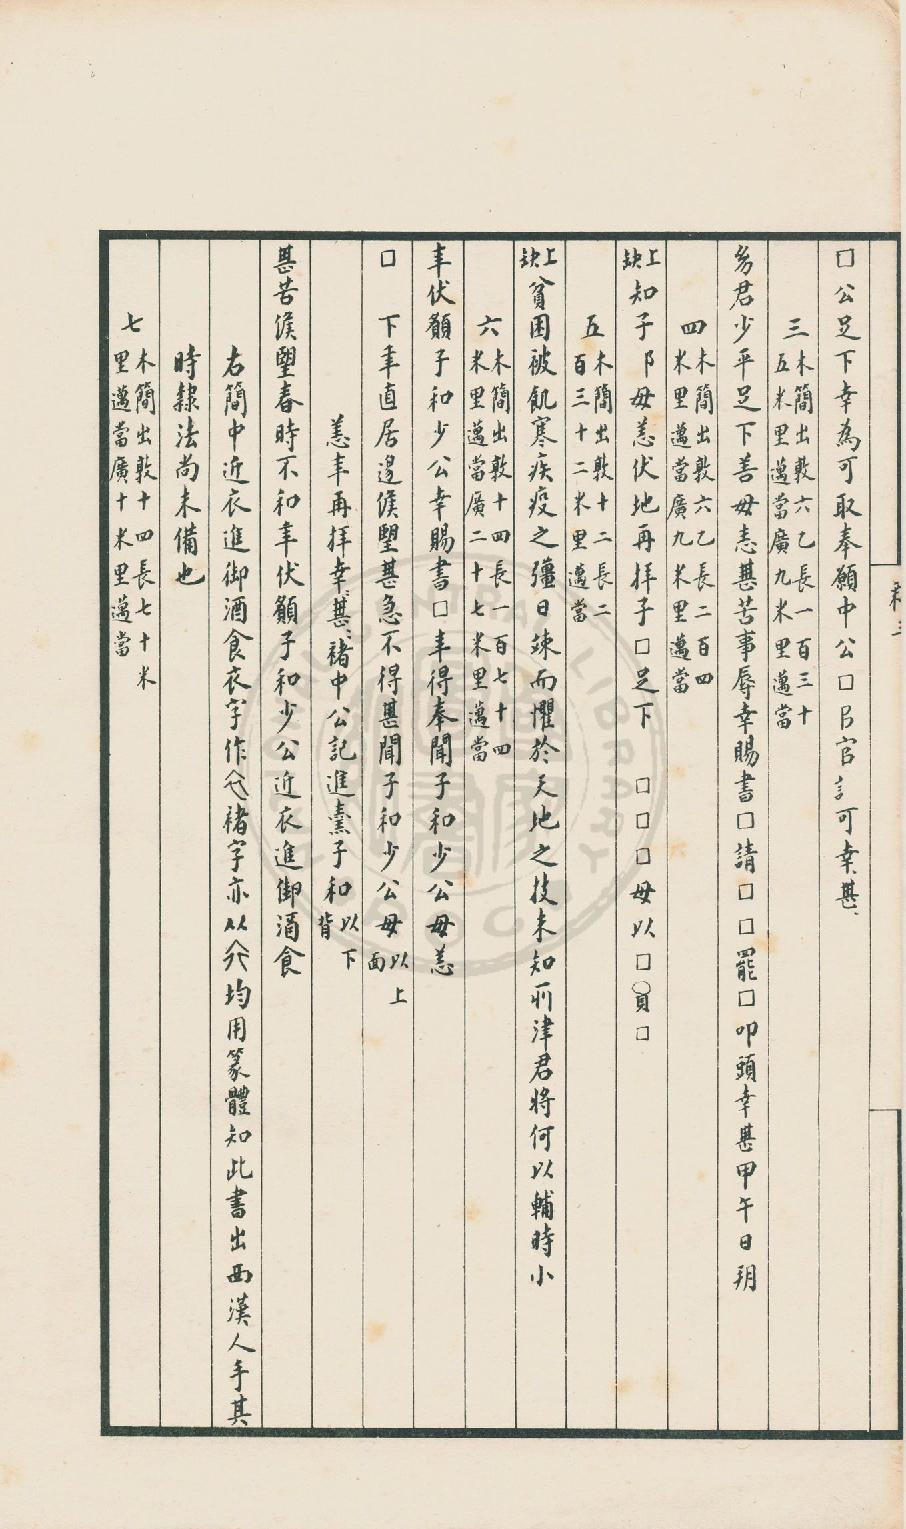 □公足下幸為可取奉願中公□□官言可幸=甚=
三 木簡出敦六乙長一百三十五米里邁當廣九米里邁當
君少平足下善毋恙甚苦事辱幸賜書□請□□罷□叩頭幸甚甲午日
四 木簡出敦六乙長二百四米里邁當廣九米里邁當
上缺知子卩毋恙伏地再拜子□足下 □□□毋以□□
五 木簡出敦十二長二百三十二米里邁當
上缺貧困被飢寒疾疫之彊日竦而懼於天地之技未知所津君將何以輔時小
六 木簡出敦十四長一百七十四米里邁當廣二十七米里邁當
奉伏願子和少公幸賜書□奉得奉聞子和少公毋恙
□ 下奉直居邊候望甚急不得甚聞子和少公毋以上面
恙奉再拜幸=甚=褚中公記進熏子和以下背
甚苦候望春時不和奉伏願子和少公近衣進御酒食
右簡中近衣進御酒食衣字作褚字亦从均用篆體知此書出西漢人手其
時隸法尚未備也
七 木簡出敦十四長七十米里邁當廣十米里邁當